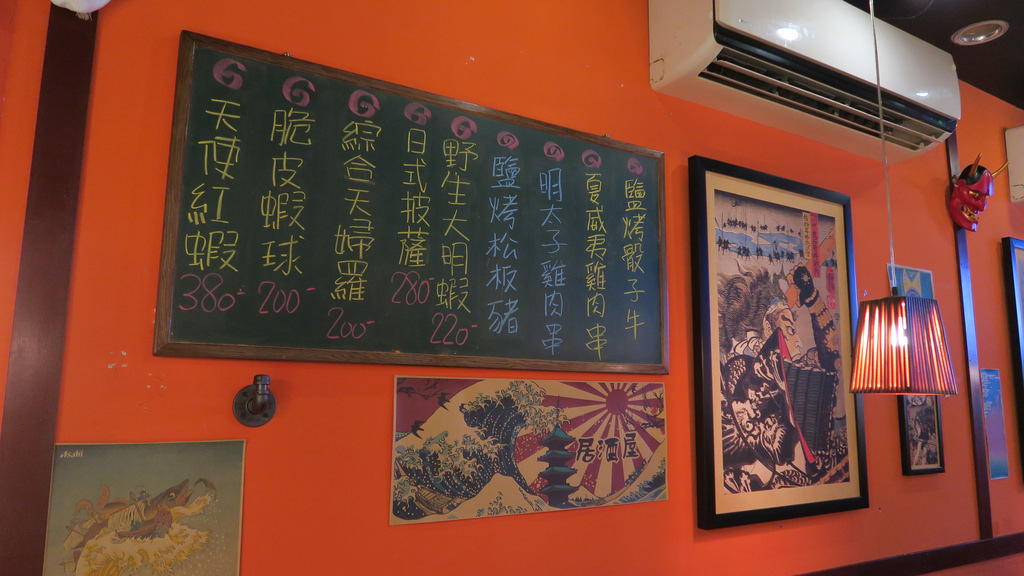 鹽烤骰子牛
夏威夷雞肉串
明太子雞肉串
鹽烤松板豬
野生大明蝦
220-
日式披薩
280-
綜合天婦羅
200-
脆皮蝦球
200-
天使紅蝦
380-
居酒屋
Asahi